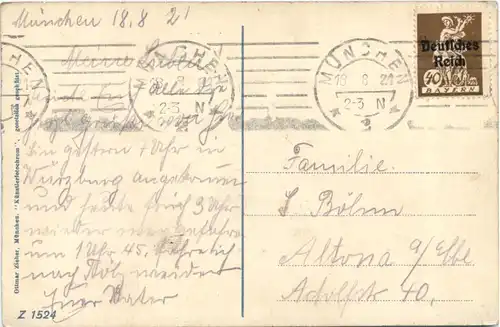 München 18.8 21
Meine Lieben
MÜNCHEN
18 8 21
2-3 N
Bin gestern 7 Uhr in
Würzburg angekommen
und heute früh 3 Uhr
wieder weggefahren
um 1 Uhr 45
nach Tölz weiter
Euer Vater
MÜNCHEN
18 8 21
2-3 N
2
Deutsches
Reich
40
BAYERN
Familie
Böhm
Altona a/Elbe
Adolfstr 40,
Ottmar Zieher, München. "Künstlerfotochrom", gesetzlich geschützt.
Z 1524